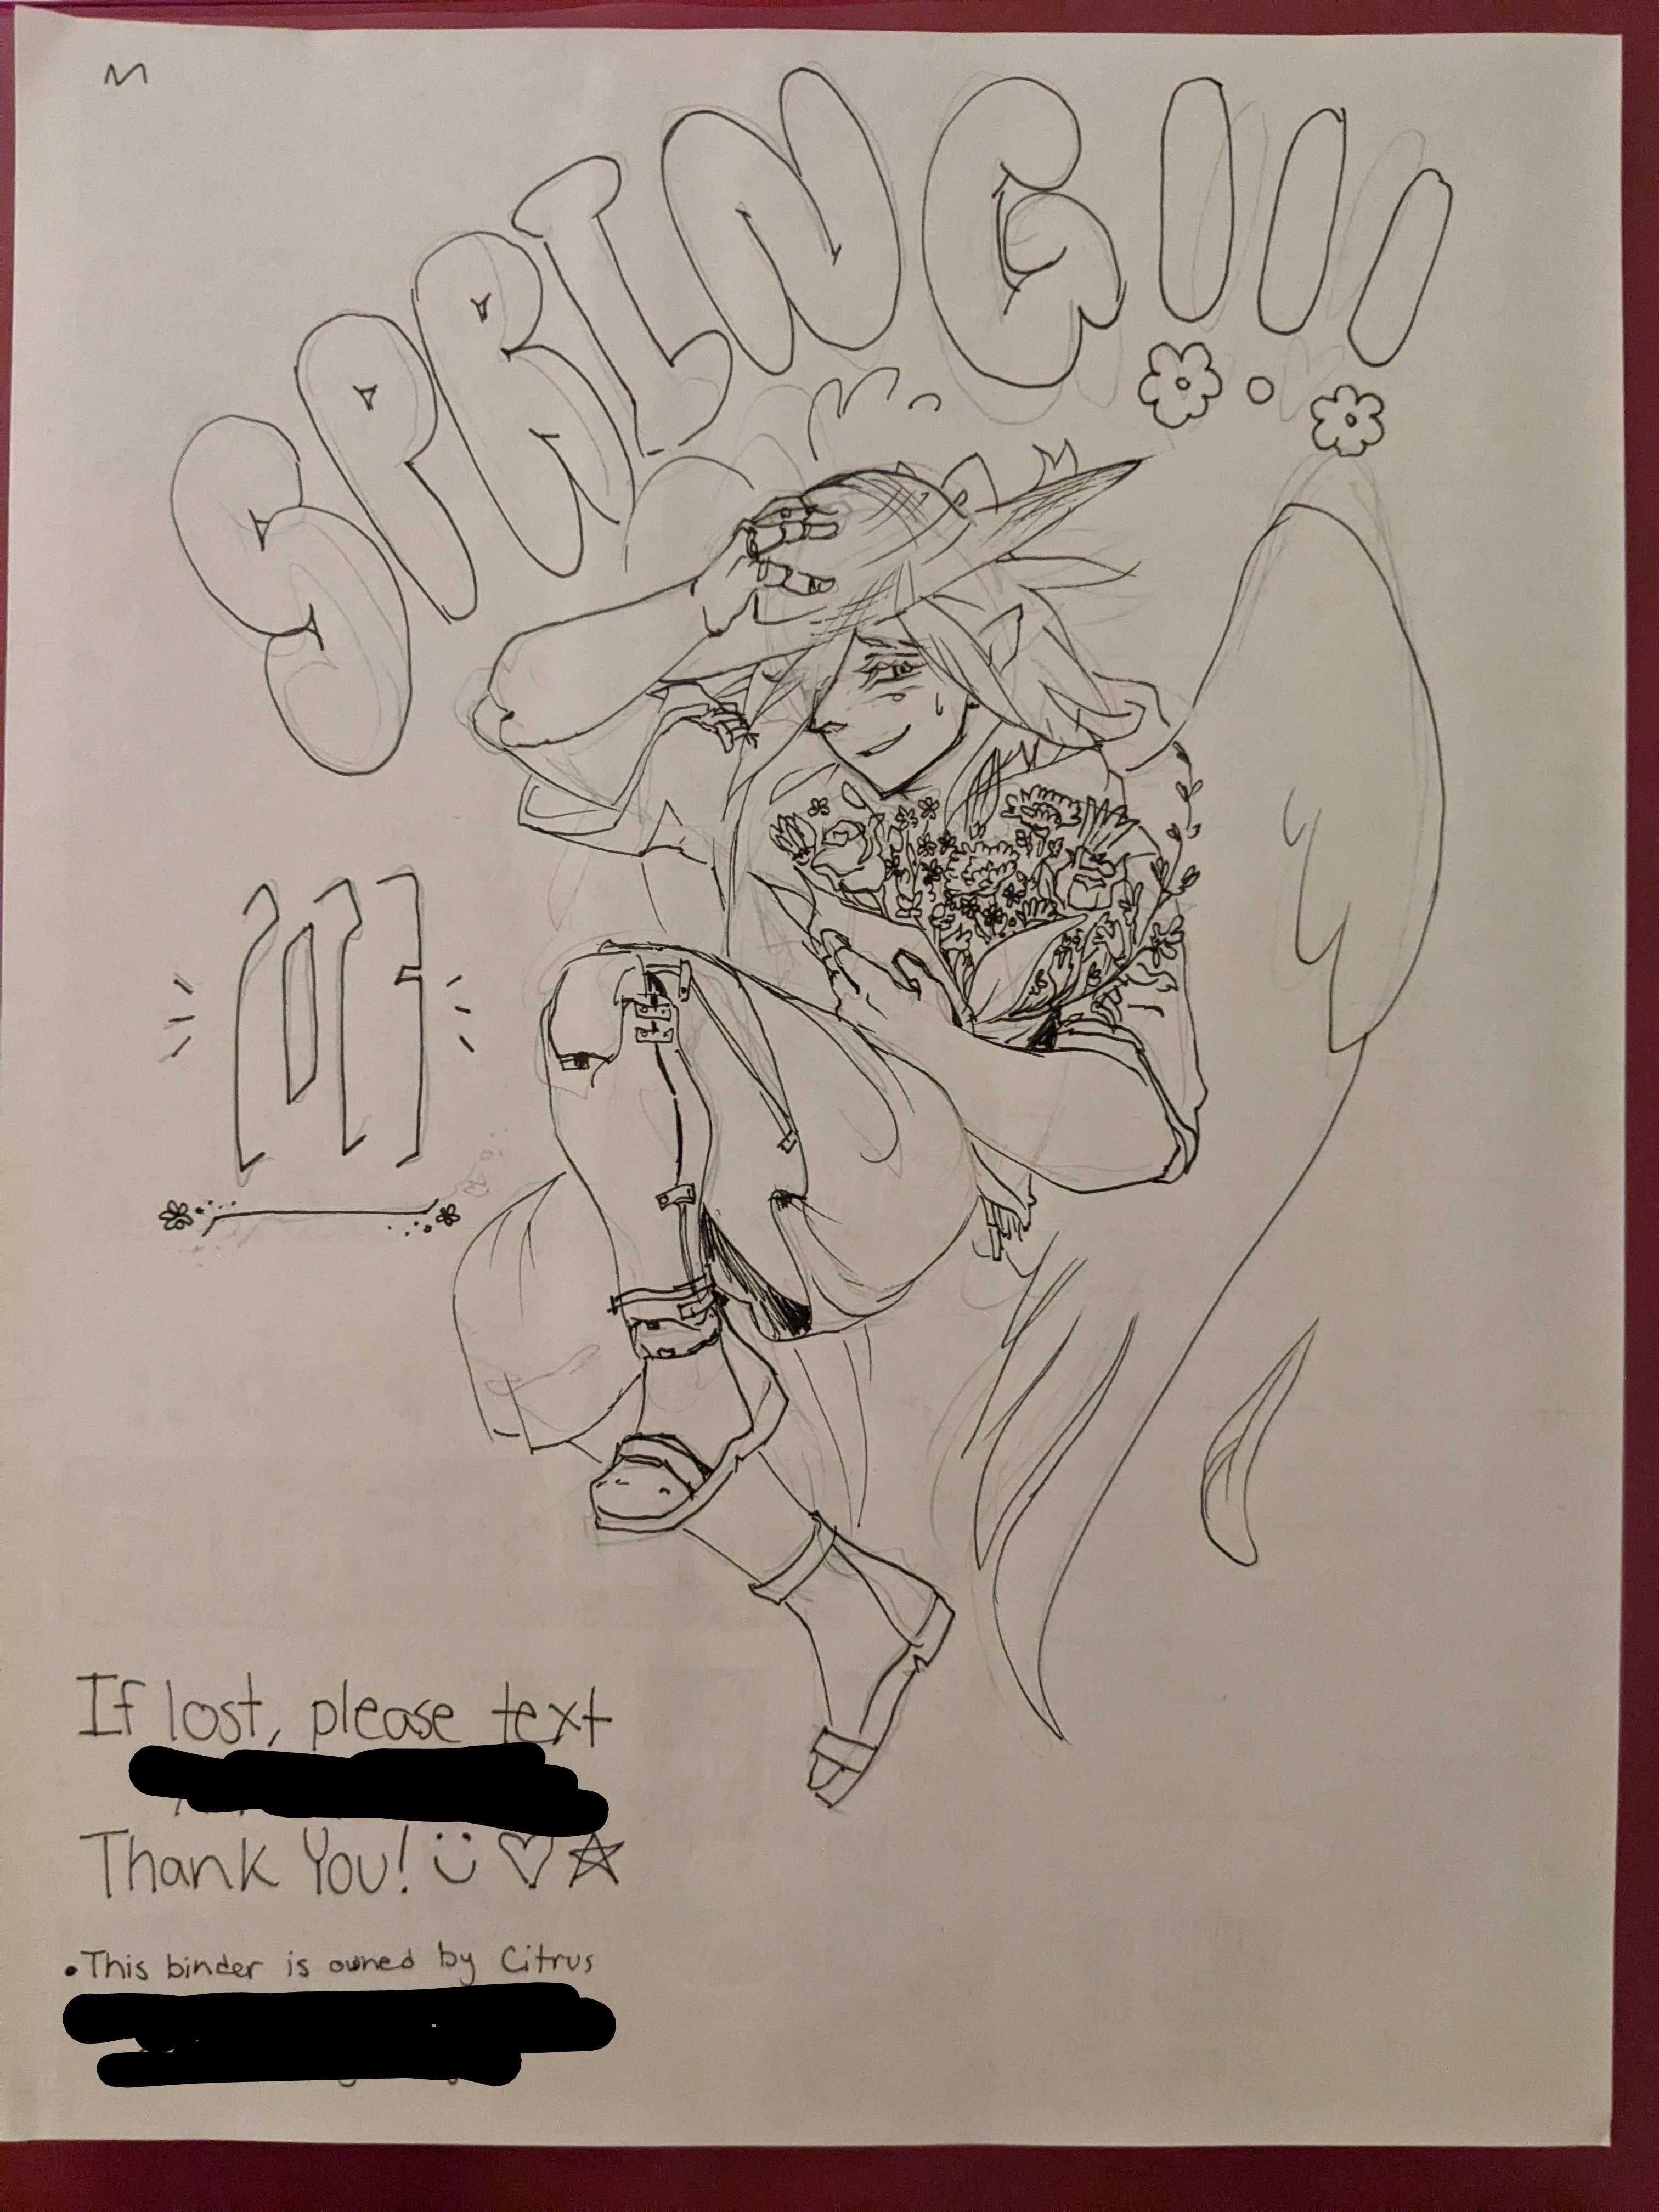 SPRING!!!
If lost, please text
Thank You! ☺♡☆
•This binder is owned by Citrus